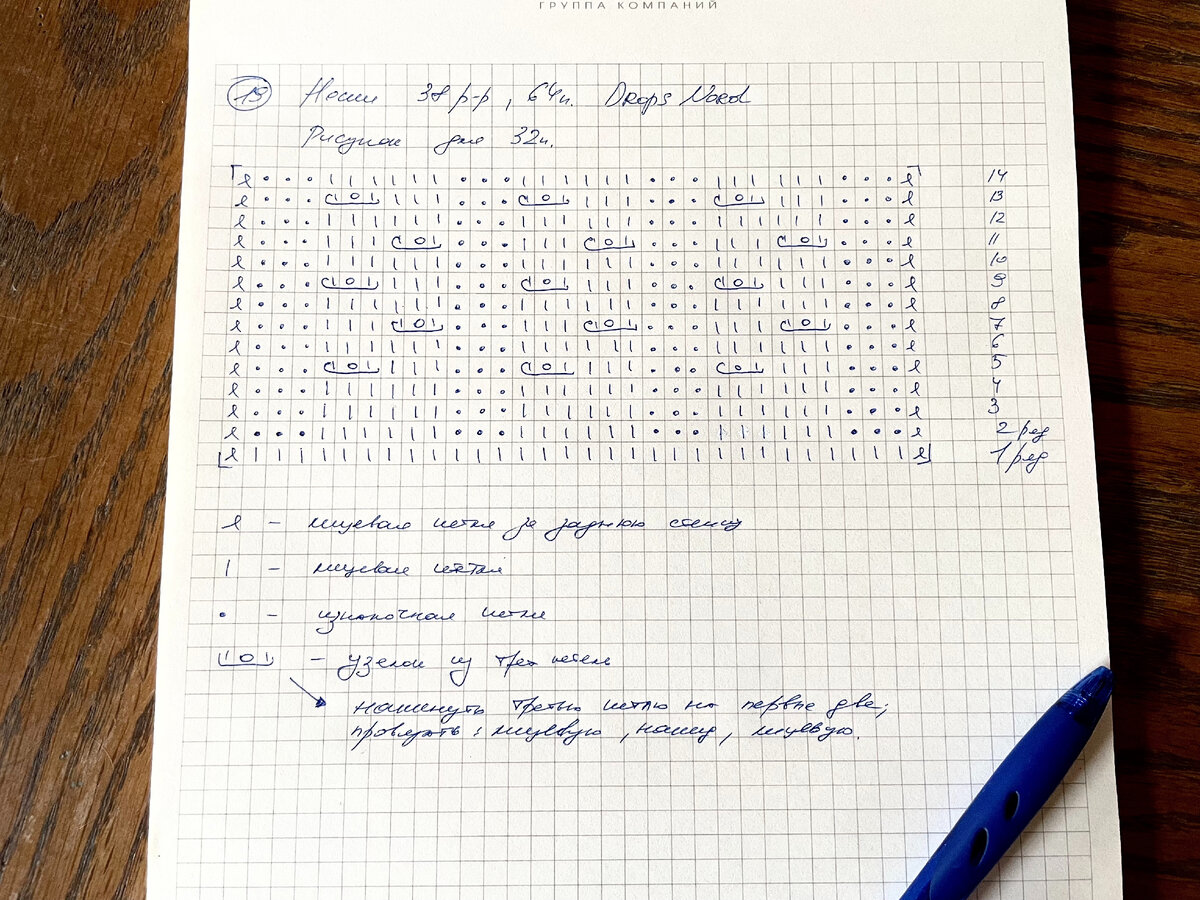 ГРУППА КОМПАНИЙ
19 Носки 38 р-р, 64п. Drops Nord
Рисунок для 32п.
ℓ • • • | | | | | | • • • | | | | | | • • • | | | | | | • • • ℓ 14
ℓ • • • | O | | | | • • • | O | | | | • • • | O | | | | • • • ℓ 13
ℓ • • • | | | | | | • • • | | | | | | • • • | | | | | | • • • ℓ 12
ℓ • • • | | | | O | • • • | | | | O | • • • | | | | O | • • • ℓ 11
ℓ • • • | | | | | | • • • | | | | | | • • • | | | | | | • • • ℓ 10
ℓ • • • | O | | | | • • • | O | | | | • • • | O | | | | • • • ℓ 9
ℓ • • • | | | | | | • • • | | | | | | • • • | | | | | | • • • ℓ 8
ℓ • • • | | | | O | • • • | | | | O | • • • | | | | O | • • • ℓ 7
ℓ • • • | | | | | | • • • | | | | | | • • • | | | | | | • • • ℓ 6
ℓ • • • | O | | | | • • • | O | | | | • • • | O | | | | • • • ℓ 5
ℓ • • • | | | | | | • • • | | | | | | • • • | | | | | | • • • ℓ 4
ℓ • • • | | | | | | • • • | | | | | | • • • | | | | | | • • • ℓ 3
ℓ • • • | | | | | | • • • | | | | | | • • • | | | | | | • • • ℓ 2 ряд
ℓ | | | | | | | | | | | | | | | | | | | | | | | | | | | | | | ℓ 1 ряд
ℓ - лицевая петля за заднюю стенку
| - лицевая петля
• - изнаночная петля
| O | - узелок из трех петель
накинуть третью петлю на первые две;
провязать: лицевую, накид, лицевую.